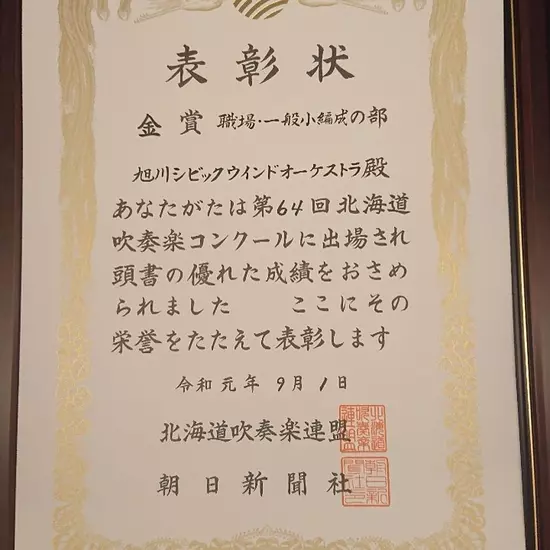 表彰状
金賞 職場・一般小編成の部
旭川シビックウインドオーケストラ殿
あなたがたは第64回北海道
吹奏楽コンクールに出場され
頭書の優れた成績をおさめ
られました ここにその
栄誉をたたえて表彰します
令和元年9月1日
北海道吹奏楽連盟
朝日新聞社